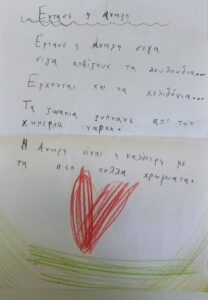 Εφτασε η άνοιξη
Εφτασε η άνοιξη σιγα
σιγα ανθίζουν τα λουλουδια...
Ερχονται και τα χελιδόνια...
Τα ζωακια ξυπνανε απ' την
χημερια ναρκη.
Η Άνοιξη είναι η καλυτερη με
τα πιο πολλα χρωματα.